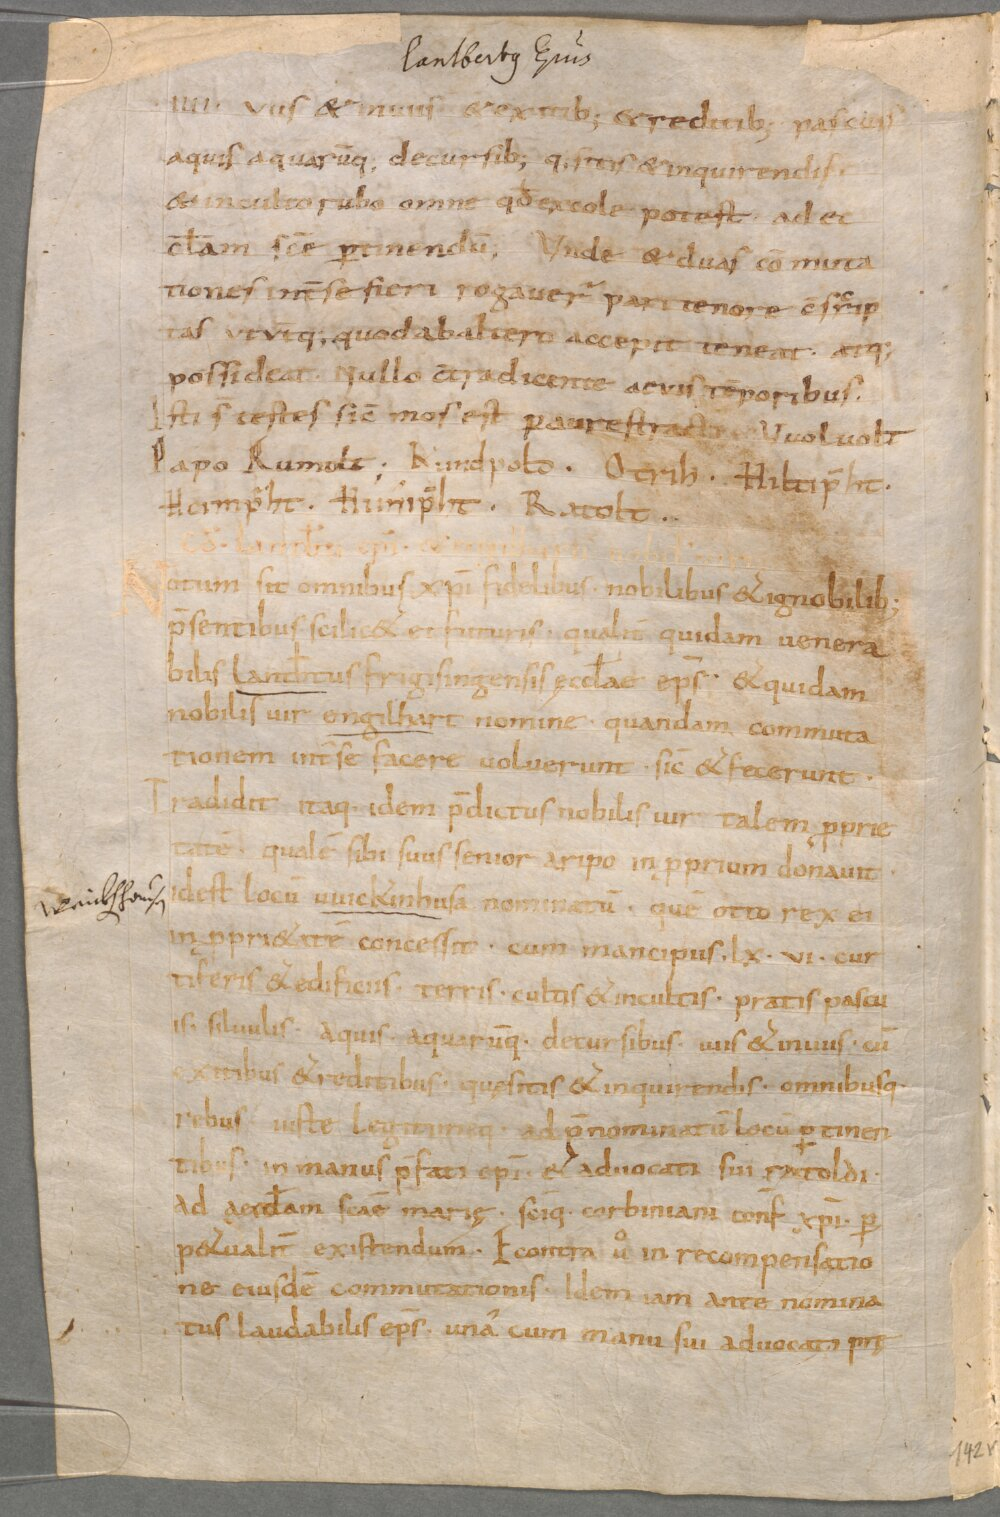 Lantbertg Epus
IIII. viis & inviis & exitib; & reditib; pascuis
aquis aquarūq; decursib; q;sitis & inquirendis.
& inculto rubo omne qđ excole potest. ad ec
cłam scē ꝑtinendū; Unde & duas cōmuta
tiones int̄ se fieri rogaver̄ pari tenore c̄scrip
tas ut ut̄q; quod ab altero accepit teneat. atq;
possideat. Nullo c̄tradicente aevis tēporibus.
Isti s̄ testes sic̄ mos est ꝑ aures tracti. Vuoluolt
Papo Rumolt; Kundpolđ. Otrih. Hiltip̄ht.
Heimp̄ht. Hunip̄ht. Ratolt.
Notum sit omnibus xp̄i fidelibus. nobilibus & ignobilib;
p̄sentibus scilic& et futuris. qualit̄ quidam venera
bilis Lantb̄tus frigisingensis ęccłae ep̄s. & quidam
nobilis vir engilhart nomine. quandam commuta
tionem int̄ se facere voluerunt. sic̄ & fecerunt.
Tradidit itaq. idem p̄dictus nobilis vir talem ꝓprie
tatē. qualē sibi suus senior aripo in ꝓprium donavit.
idest locū vvick&inhusa nominatū. quē otto rex ei
in ꝓpri&atē concessit. cum mancipiis. lx. vi. cur
tiferis & edificiis. terris. cultis & incultis. pratis pascu
is. silvulis. aquis. aquarūq. decursibus. viis & inviis. cū
exitibus & reditibus. quęsitis & inquirendis. omnibusq.
rebus iuste legitimeq. ad p̄nominatū locū ꝑtinen
tibus. in manus p̄fati ep̄i. & advocati sui ratoldi.
Ad aeccłam scāe marię. sc̄iq. corbiniani conf̄ xp̄i. ꝑ
p&ualit̄ existendum. Econtra ů in recompensatio
ne eiusdē commutationis. Idem iam ante nomina
tus laudabilis ep̄s. una cum manu sui advocati
142v